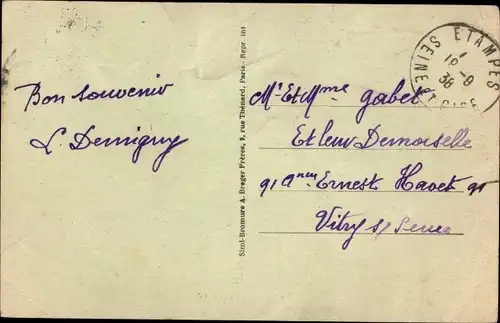 Bon souvenir
L Demigny
Simi-Bromure A. Breger Frères, 9, rue Thénard, Paris - Repr int
ETAMPES
18 - 9
36
SEINE ET OISE
Mr Et Mme Gabet
Et leur Demoiselle
91 a Ernest Havet 91
Vitry s/ Seine